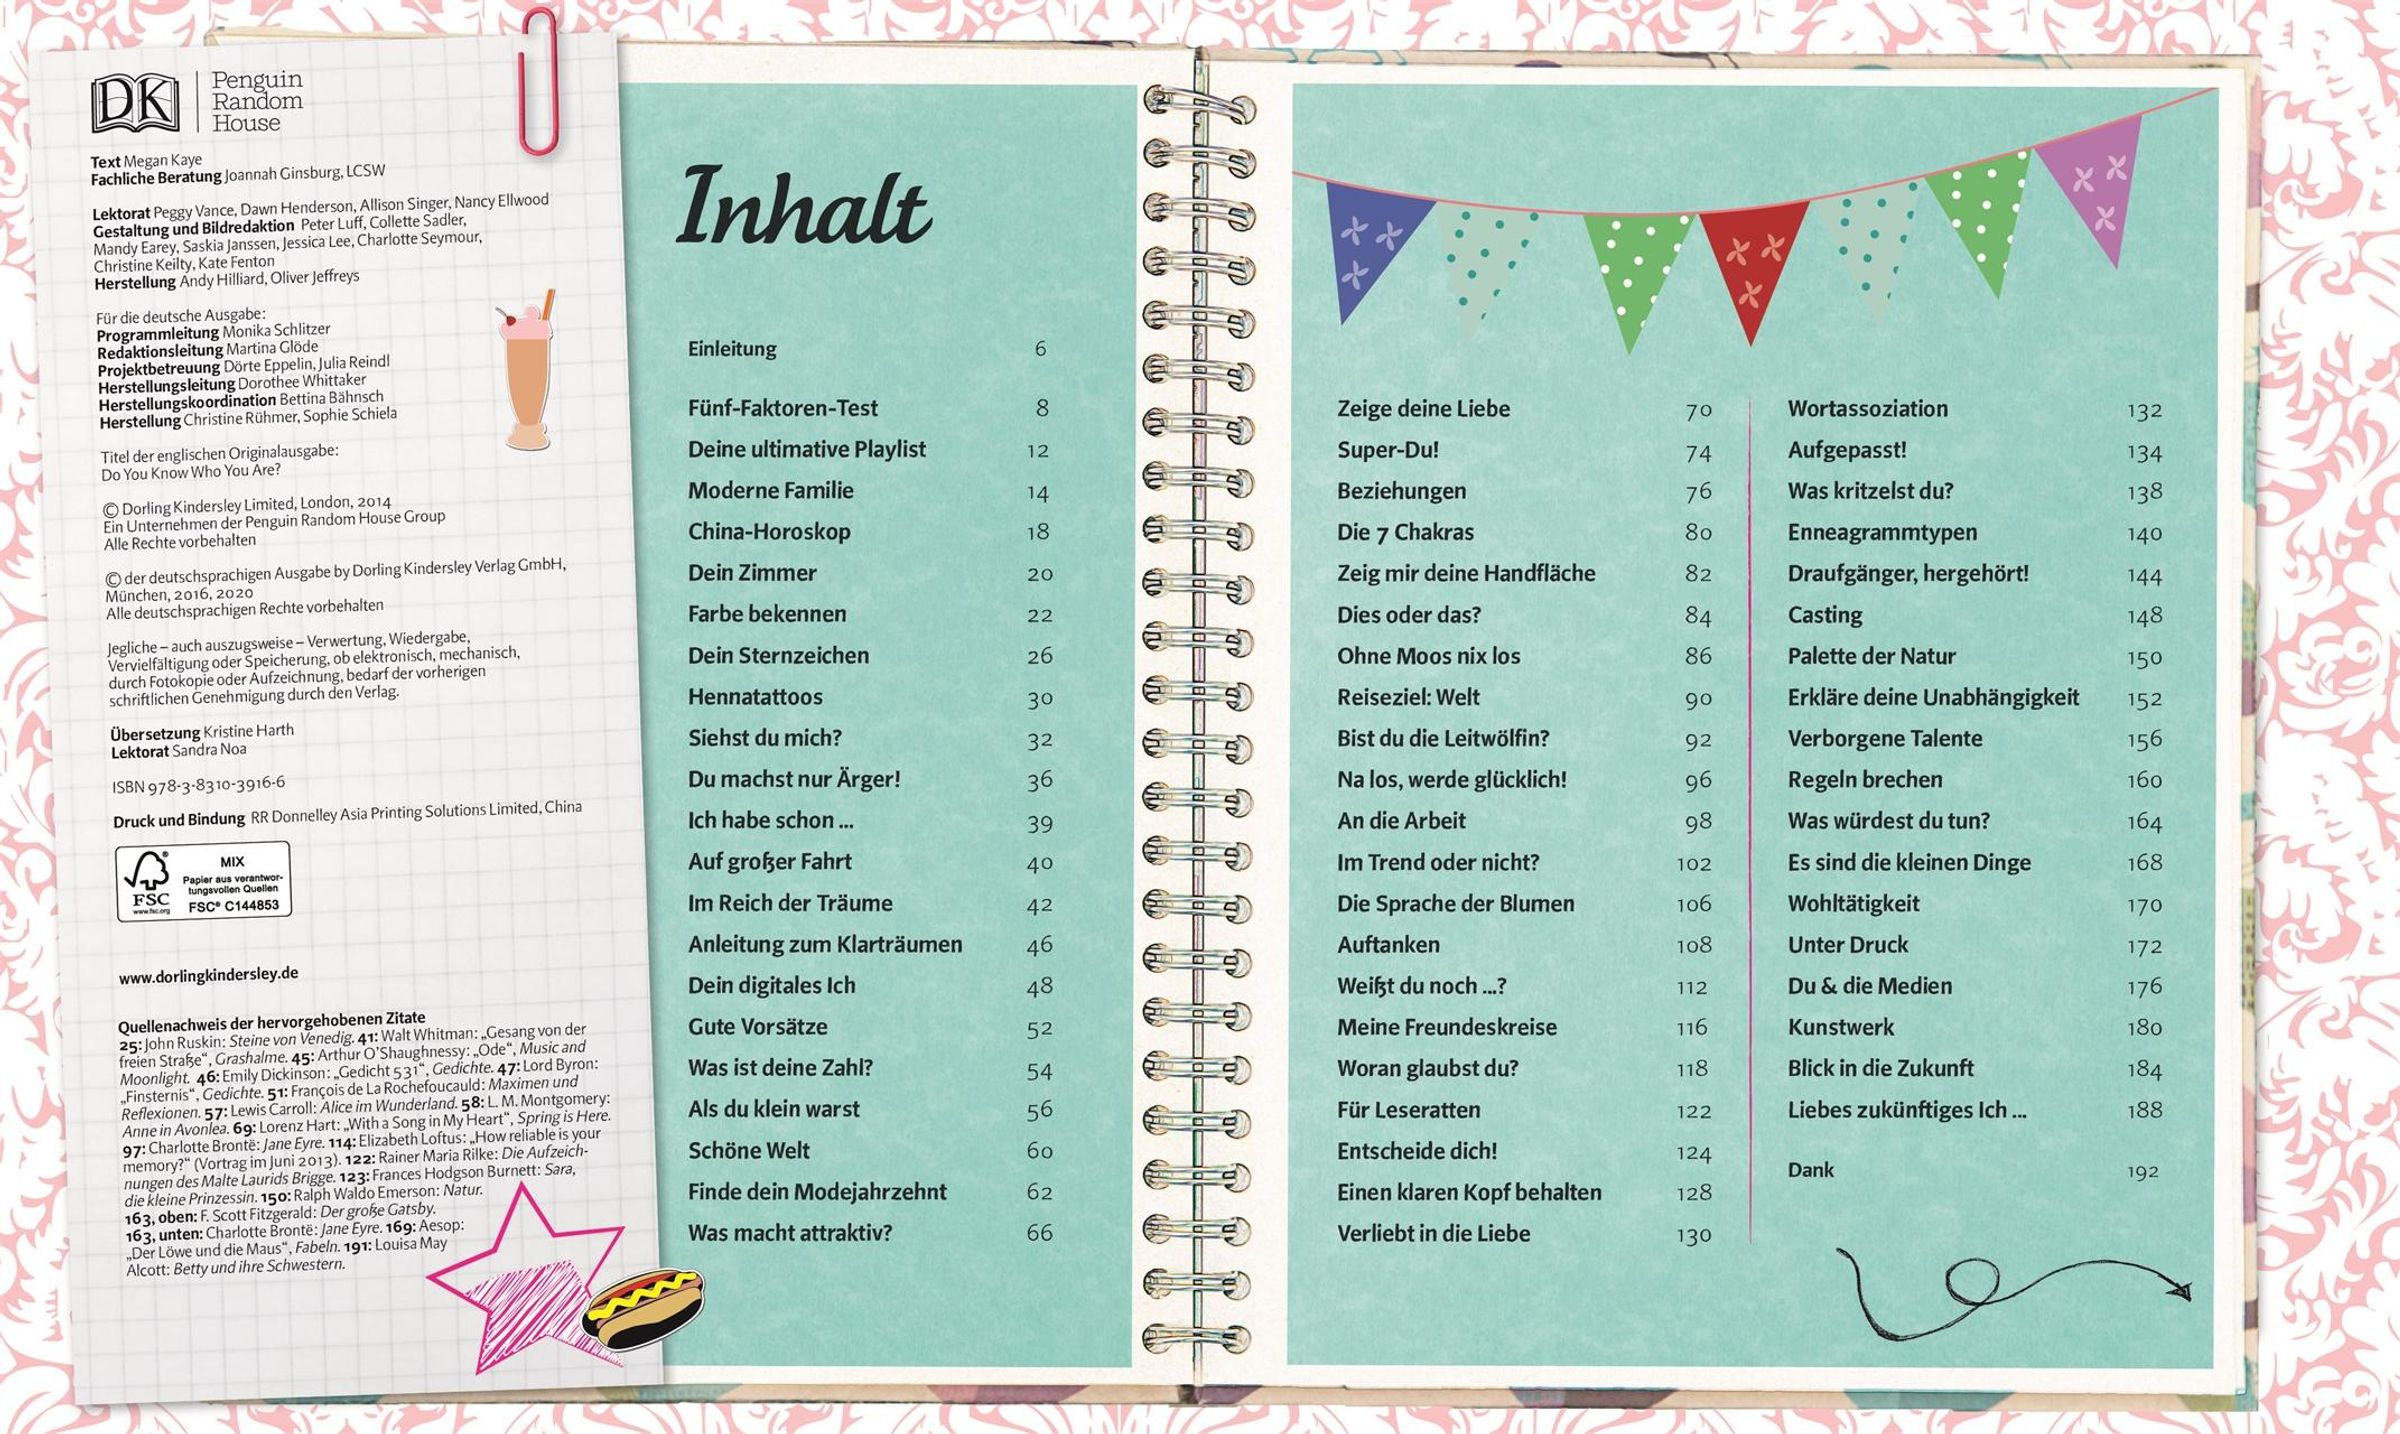 DK
Penguin
Random
House
Text Megan Kaye
Fachliche Beratung Joannah Ginsburg, LCSW
Lektorat Peggy Vance, Dawn Henderson, Allison Singer, Nancy Ellwood
Gestaltung und Bildredaktion Peter Luff, Collette Sadler,
Mandy Earey, Saskia Janssen, Jessica Lee, Charlotte Seymour,
Christine Keilty, Kate Fenton
Herstellung Andy Hilliard, Oliver Jeffreys
Für die deutsche Ausgabe:
Programmleitung Monika Schlitzer
Redaktionsleitung Martina Glöde
Projektbetreuung Dörte Eppelin, Julia Reindl
Herstellungsleitung Dorothee Whittaker
Herstellungskoordination Bettina Bähnsch
Herstellung Christine Rühmer, Sophie Schiela
Titel der englischen Originalausgabe:
Do You Know Who You Are?
© Dorling Kindersley Limited, London, 2014
Ein Unternehmen der Penguin Random House Group
Alle Rechte vorbehalten
© der deutschsprachigen Ausgabe by Dorling Kindersley Verlag GmbH,
München, 2016, 2020
Alle deutschsprachigen Rechte vorbehalten
Jegliche – auch auszugsweise – Verwertung, Wiedergabe,
Vervielfältigung oder Speicherung, ob elektronisch, mechanisch,
durch Fotokopie oder Aufzeichnung, bedarf der vorherigen
schriftlichen Genehmigung durch den Verlag.
Übersetzung Kristine Harth
Lektorat Sandra Noa
ISBN 978-3-8310-3916-6
Druck und Bindung RR Donnelley Asia Printing Solutions Limited, China
FSC
www.fsc.org
MIX
Papier aus verantwor-
tungsvollen Quellen
FSC® C144853
www.dorlingkindersley.de
Quellennachweis der hervorgehobenen Zitate
25: John Ruskin: Steine von Venedig. 41: Walt Whitman: „Gesang von der
freien Straße“, Grashalme. 45: Arthur O'Shaughnessy: „Ode“, Music and
Moonlight. 46: Emily Dickinson: „Gedicht 531“, Gedichte. 47: Lord Byron:
„Finsternis“, Gedichte. 51: François de La Rochefoucauld: Maximen und
Reflexionen. 57: Lewis Carroll: Alice im Wunderland. 58: L. M. Montgomery:
Anne in Avonlea. 69: Lorenz Hart: „With a Song in My Heart“, Spring is Here.
97: Charlotte Brontë: Jane Eyre. 114: Elizabeth Loftus: „How reliable is your
memory?“ (Vortrag im Juni 2013). 122: Rainer Maria Rilke: Die Aufzeich-
nungen des Malte Laurids Brigge. 123: Frances Hodgson Burnett: Sara,
die kleine Prinzessin. 150: Ralph Waldo Emerson: Natur.
163, oben: F. Scott Fitzgerald: Der große Gatsby.
163, unten: Charlotte Brontë: Jane Eyre. 169: Aesop:
„Der Löwe und die Maus“, Fabeln. 191: Louisa May
Alcott: Betty und ihre Schwestern.
Inhalt
Einleitung 6
Fünf-Faktoren-Test 8
Deine ultimative Playlist 12
Moderne Familie 14
China-Horoskop 18
Dein Zimmer 20
Farbe bekennen 22
Dein Sternzeichen 26
Hennatattoos 30
Siehst du mich? 32
Du machst nur Ärger! 36
Ich habe schon ... 39
Auf großer Fahrt 40
Im Reich der Träume 42
Anleitung zum Klarträumen 46
Dein digitales Ich 48
Gute Vorsätze 52
Was ist deine Zahl? 54
Als du klein warst 56
Schöne Welt 60
Finde dein Modejahrzehnt 62
Was macht attraktiv? 66
Zeige deine Liebe 70
Super-Du! 74
Beziehungen 76
Die 7 Chakras 80
Zeig mir deine Handfläche 82
Dies oder das? 84
Ohne Moos nix los 86
Reiseziel: Welt 90
Bist du die Leitwölfin? 92
Na los, werde glücklich! 96
An die Arbeit 98
Im Trend oder nicht? 102
Die Sprache der Blumen 106
Auftanken 108
Weißt du noch ...? 112
Meine Freundeskreise 116
Woran glaubst du? 118
Für Leseratten 122
Entscheide dich! 124
Einen klaren Kopf behalten 128
Verliebt in die Liebe 130
Wortassoziation 132
Aufgepasst! 134
Was kritzelst du? 138
Enneagrammtypen 140
Draufgänger, hergehört! 144
Casting 148
Palette der Natur 150
Erkläre deine Unabhängigkeit 152
Verborgene Talente 156
Regeln brechen 160
Was würdest du tun? 164
Es sind die kleinen Dinge 168
Wohltätigkeit 170
Unter Druck 172
Du & die Medien 176
Kunstwerk 180
Blick in die Zukunft 184
Liebes zukünftiges Ich ... 188
Dank 192